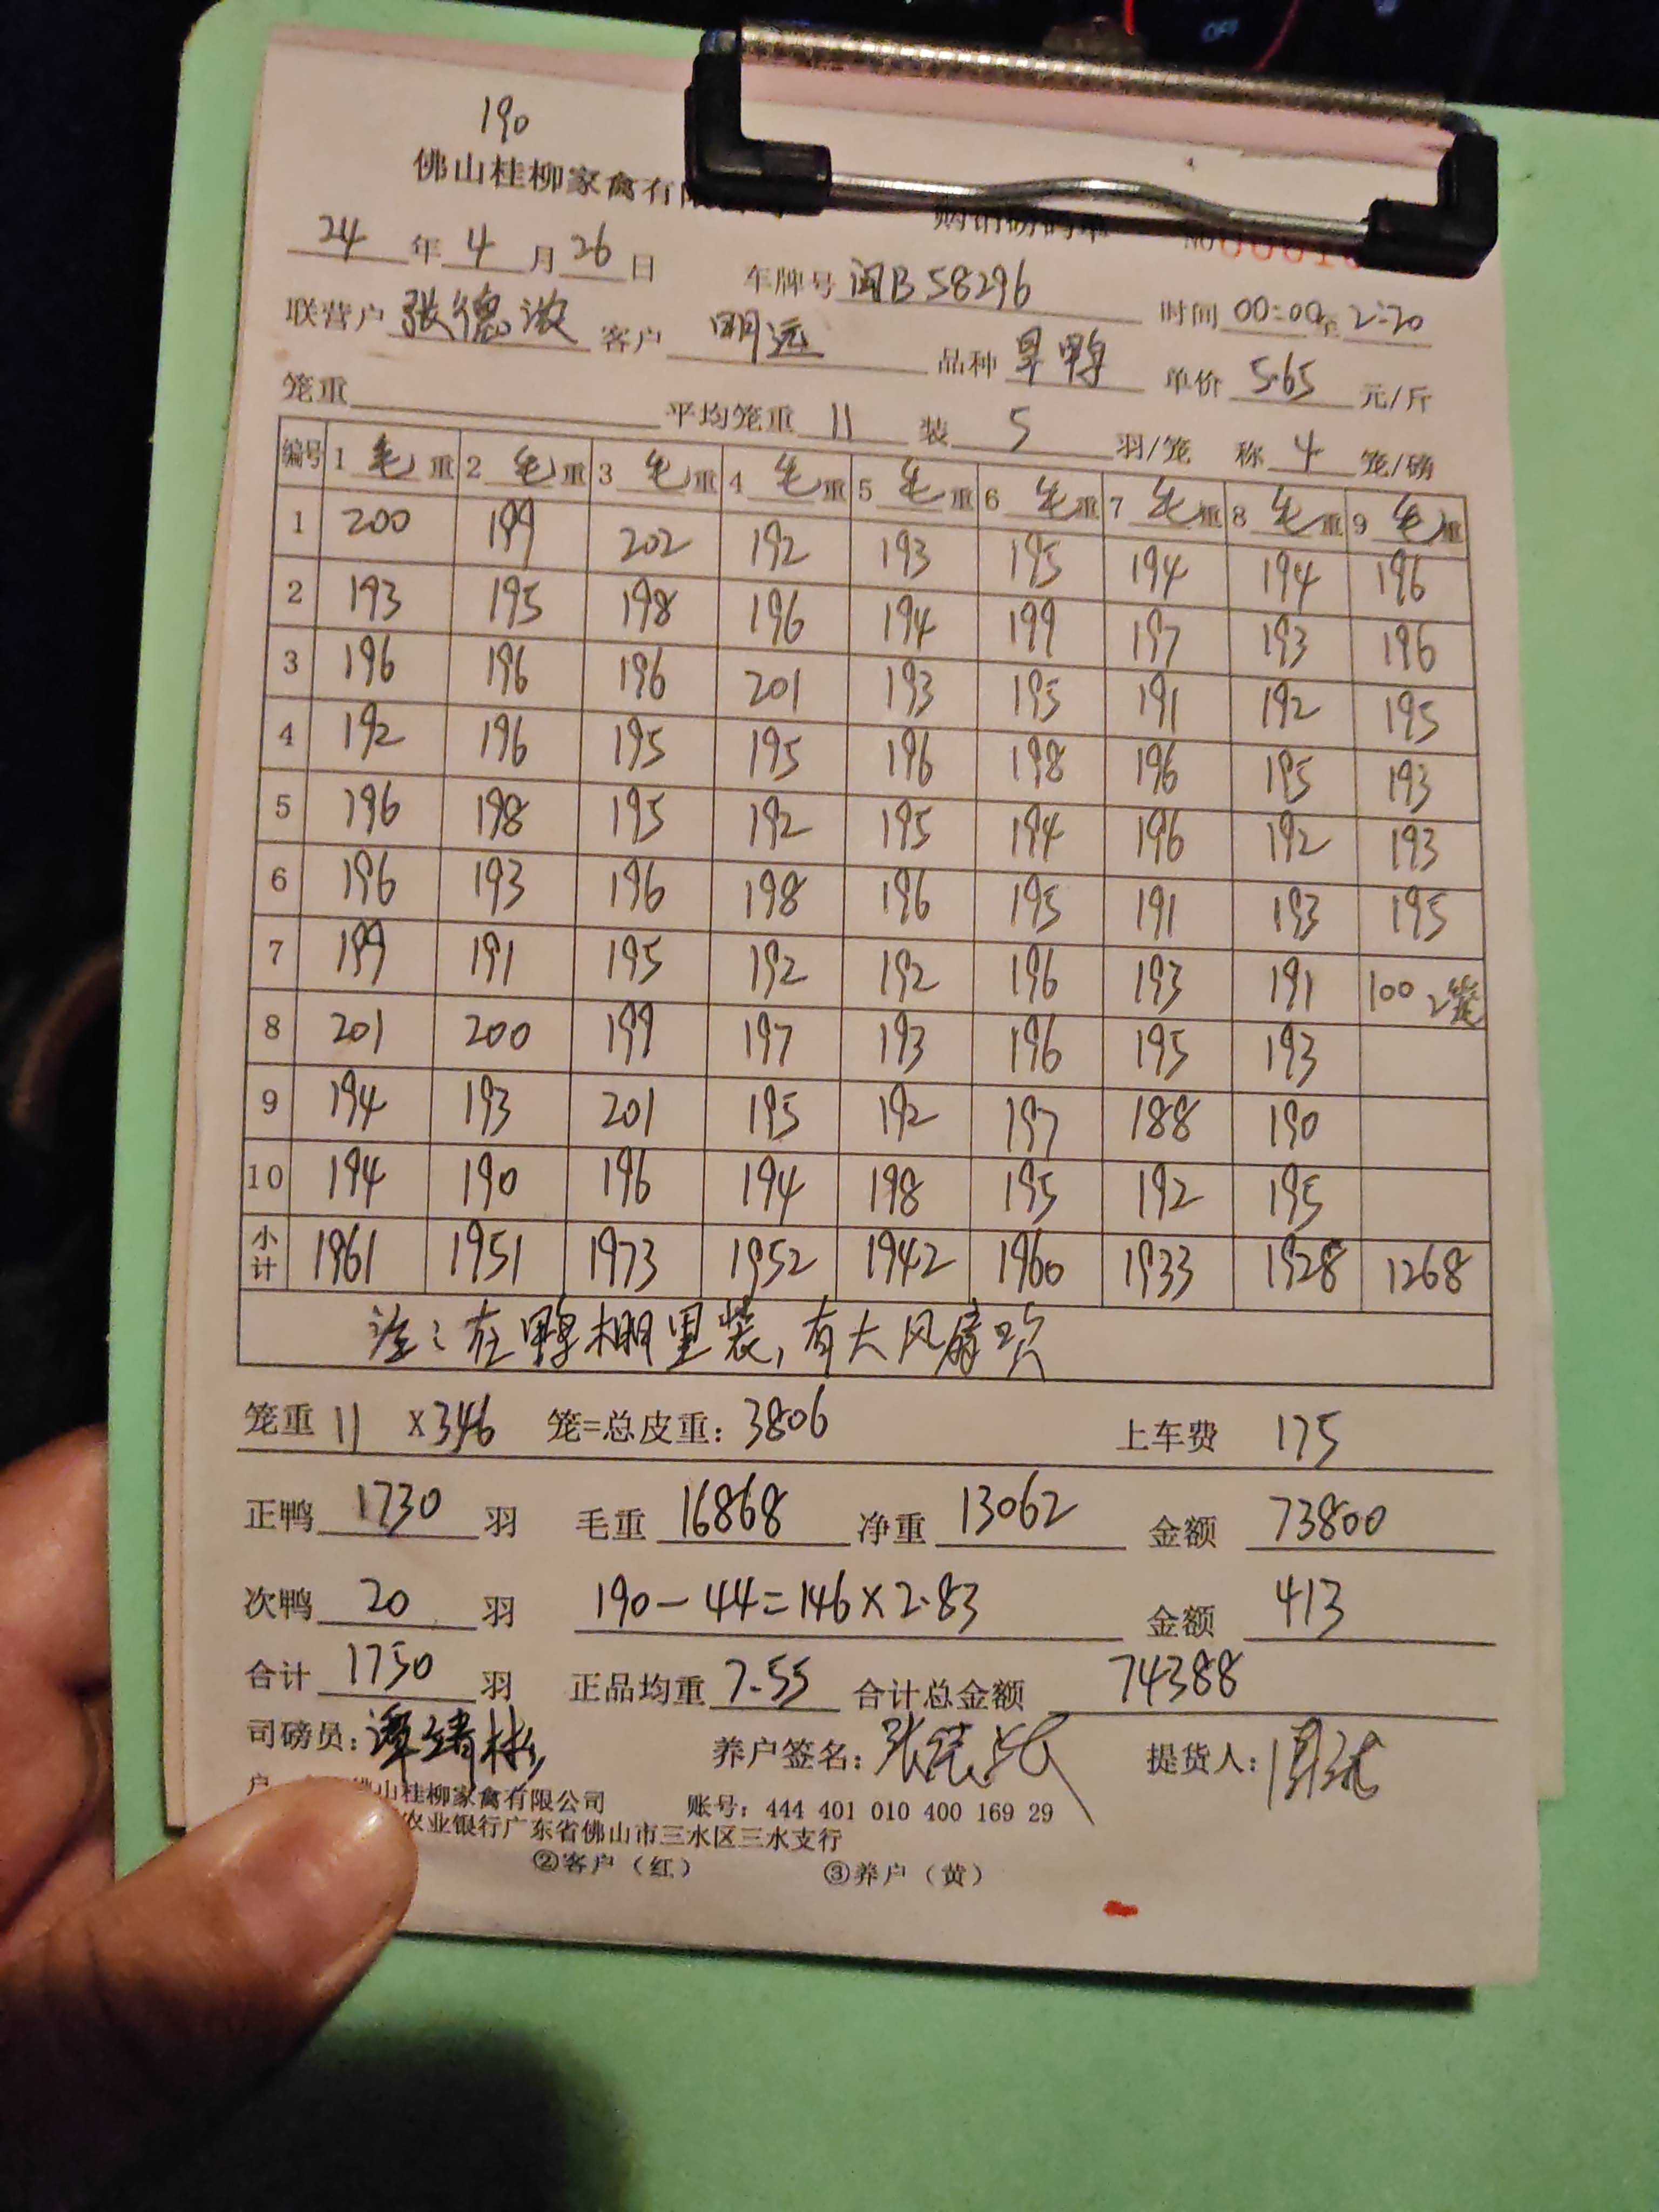 190
佛山桂柳家禽有限
24 年 4 月 26 日 车牌号 闽B58296 时间 00:00 至 2:20
联营户 张德 客户 明远 品种 旱鸭 单价 5.65 元/斤
笼重 平均笼重 11 装 5 羽/笼 称 4 笼/磅
编号 1 毛重 2 毛重 3 毛重 4 毛重 5 毛重 6 毛重 7 毛重 8 毛重 9 毛重
1 200 199 202 192 193 195 194 194 196
2 193 195 198 196 194 199 197 193 196
3 196 196 196 201 193 195 191 192 195
4 192 196 195 195 196 198 196 195 193
5 196 198 195 192 195 194 196 192 193
6 196 193 196 198 196 195 191 193 195
7 199 191 195 192 192 196 193 191 100 2笼
8 201 200 199 197 193 196 195 193
9 194 193 201 195 192 197 188 190
10 194 190 196 194 198 195 192 195
小计 1961 1951 1973 1952 1942 1960 1933 1928 1268
注:在鸭棚里装,有大风扇吹
笼重 11 ×346 笼=总皮重:3806 上车费 175
正鸭 1730 羽 毛重 16868 净重 13062 金额 73800
次鸭 20 羽 190-44=146×2.83 金额 413
合计 1750 羽 正品均重 7.55 合计总金额 74388
司磅员:谭绪彬 养户签名: 提货人:
户 佛山桂柳家禽有限公司 账号:444 401 010 400 169 29
农业银行广东省佛山市三水区三水支行
②客户(红) ③养户(黄)